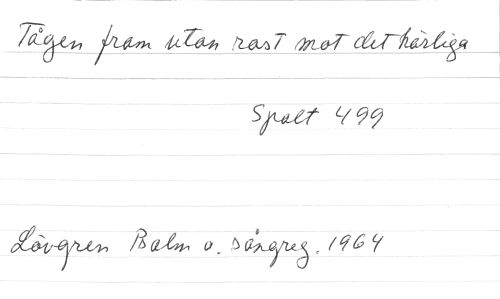 Tågen fram utan rast mot det härliga
Spalt 499
Lövgren Psalm o. sångreg. 1964